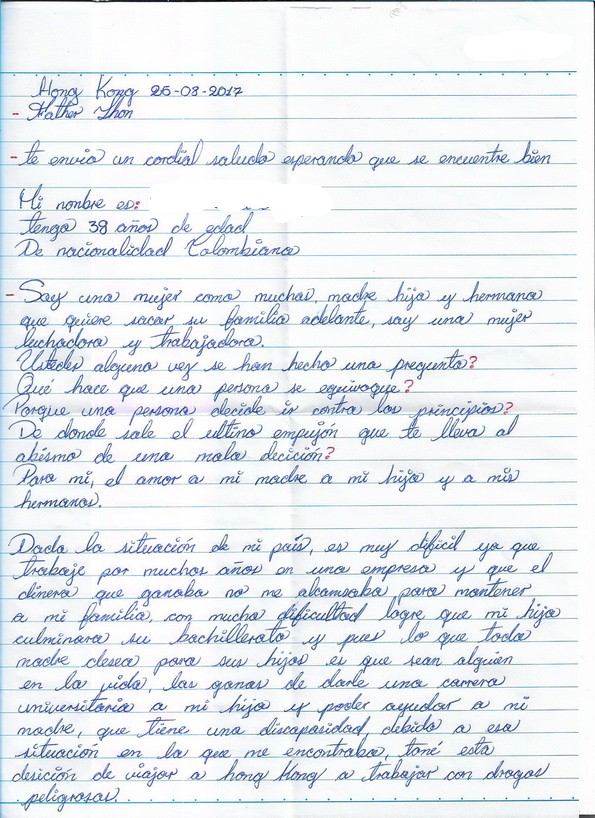 Hong Kong 25-03-2017
- Father Jhon
- te envio un cordial saludo esperando que se encuentre bien
Mi nonbre es:
tengo 38 años de edad
De nacionalidad Colombiana
- Soy una mujer como muchas, madre hija y hermana
que quiere sacar su familia adelante, soy una mujer
luchadora y trabajadora.
Ustedes alguna vez se han hecho una pregunta?
Qué hace que una persona se equivoque?
Porque una persona decide ir contra los principios?
De donde sale el ultino empujón que te lleva al
abismo de una mala decición?
Para mi, el amor a mi madre a mi hija y a mis
hermanos.
Dada la situación de mi país, es muy dificil ya que
trabaje por muchos años en una empresa y que el
dinero que ganaba no me alcansaba para mantener
a mi familia, con mucha dificultad logre que mi hija
culminara su bachillerato y pues lo que toda
madre desea para sus hijos es que sean alguien
en la vida, las ganas de darle una carrera
universitaria a mi hija y poder ayudar a mi
madre, que tiene una discapasidad, debido a esa
situación en la que me encontraba, tomé esta
desición de viajar a hong Kong a trabajar con drogas
peligrosas.